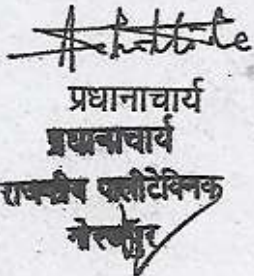 प्रधानाचार्य
प्रधानाचार्य
राजकीय पालीटेक्निक
गोरखपुर